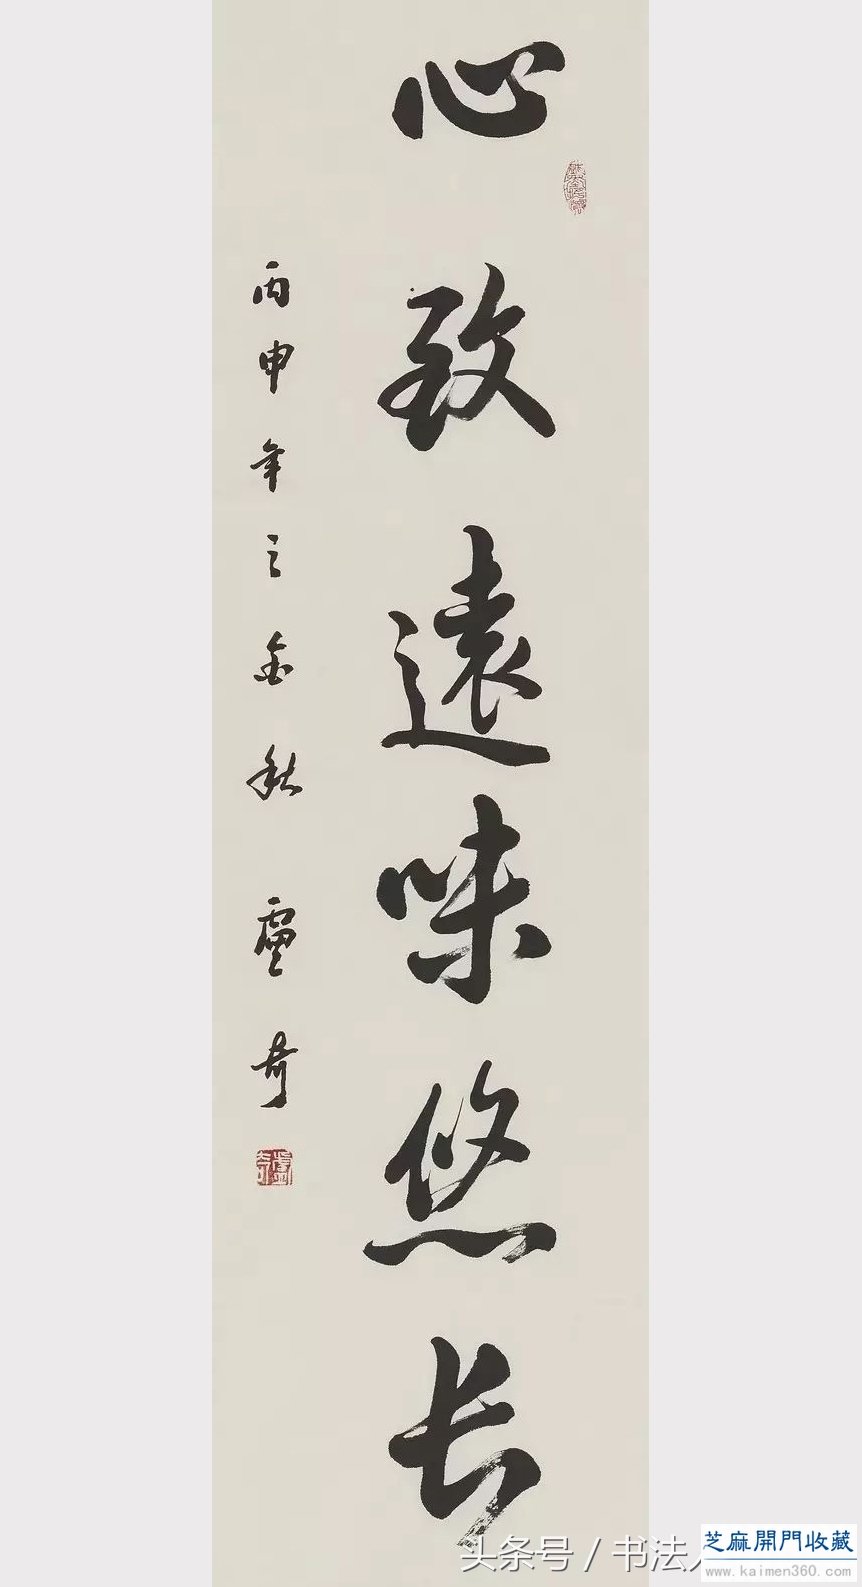 心致遠味悠长
丙申年之金秋 盧奇
头条号 / 书法人
芝麻開門收藏
www.kaimen360.com